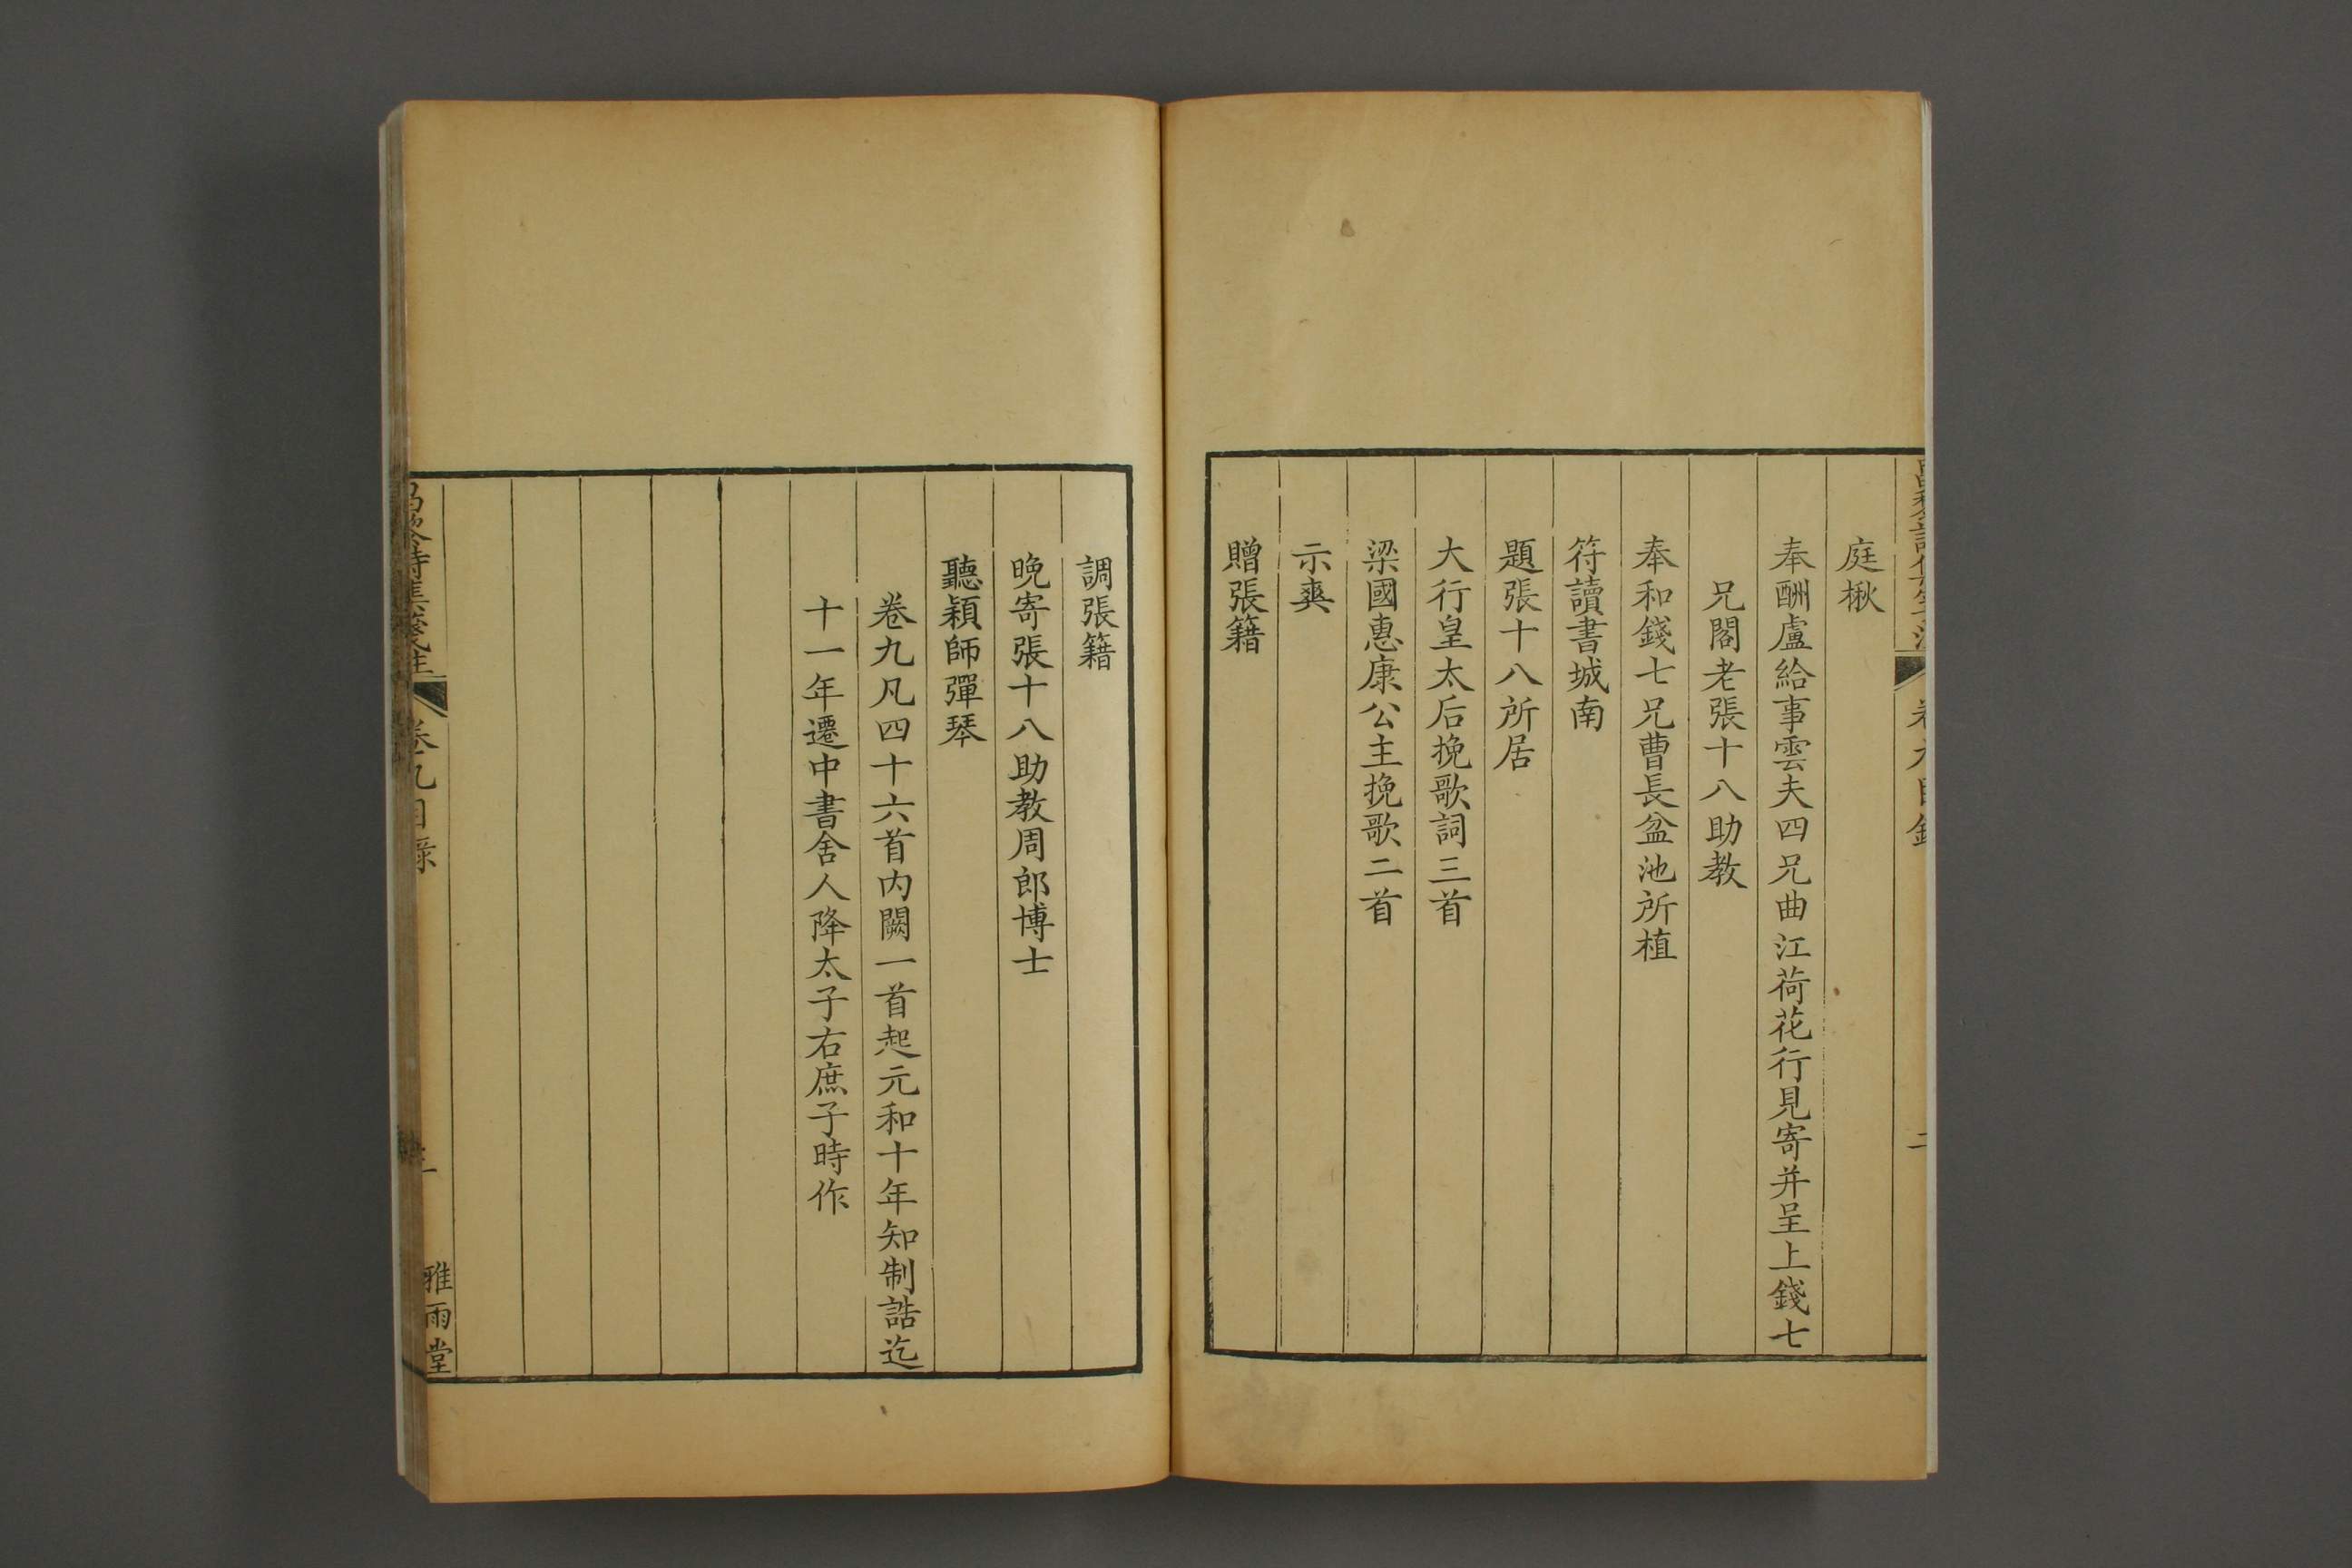 庭楸
奉酬盧給事雲夫四兄曲江荷花行見寄并呈上錢七
兄閣老張十八助教
奉和錢七兄曹長盆池所植
符讀書城南
題張十八所居
大行皇太后挽歌詞三首
梁國惠康公主挽歌二首
示爽
贈張籍
調張籍
晚寄張十八助教周郎博士
聽穎師彈琴
卷九凡四十六首内闕一首起元和十年知制誥迄
十一年遷中書舍人降太子右庶子時作
卷九目錄
雅雨堂